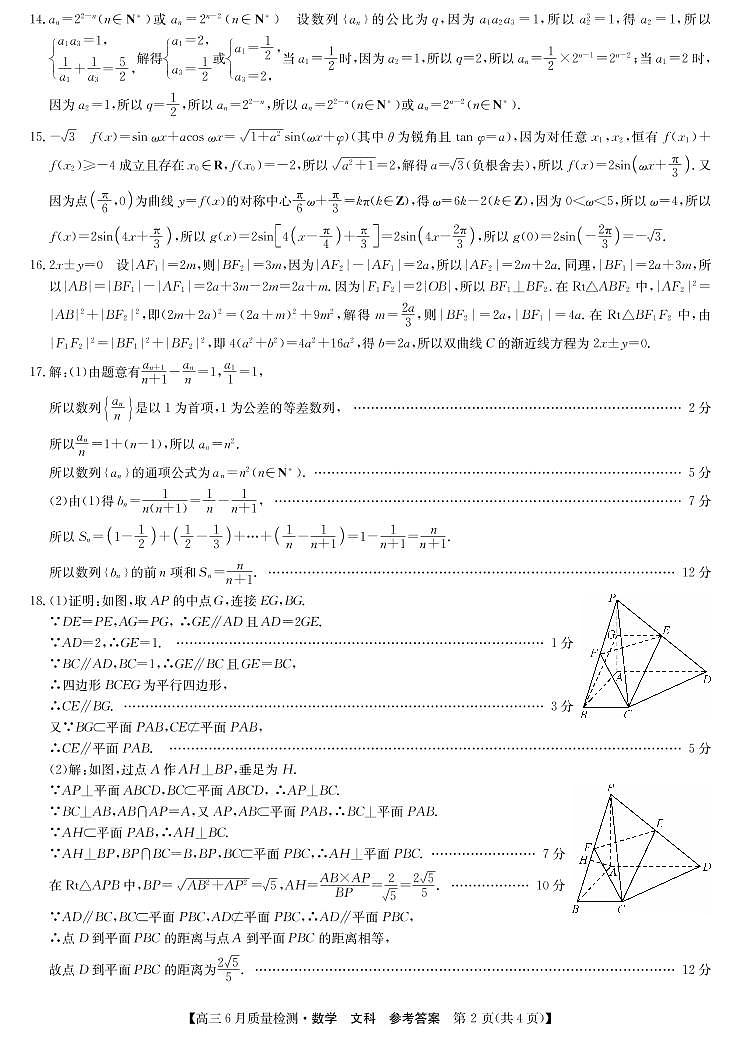 14. aₙ=2²⁻ⁿ(n∈N*)或 aₙ=2ⁿ⁻²(n∈N*)　设数列{aₙ}的公比为 q,因为 a₁a₂a₃=1,所以 a₂³=1,得 a₂=1,所以
{a₁a₃=1, 1/a₁+1/a₃=5/2, 解得{a₁=2, a₃=1/2 或{a₁=1/2, a₃=2, 当 a₁=1/2时,因为 a₂=1,所以 q=2,所以 aₙ=1/2×2ⁿ⁻¹=2ⁿ⁻²;当 a₁=2 时,
因为 a₂=1,所以 q=1/2,所以 aₙ=2²⁻ⁿ,所以 aₙ=2²⁻ⁿ(n∈N*)或 aₙ=2ⁿ⁻²(n∈N*).
15. −√3　f(x)=sin ωx+acos ωx=√(1+a²) sin(ωx+φ)(其中 θ 为锐角且 tan φ=a),因为对任意 x₁,x₂,恒有 f(x₁)+
f(x₂)≥−4 成立且存在 x₀∈R,f(x₀)=−2,所以 √(a²+1)=2,解得 a=√3(负根舍去),所以 f(x)=2sin(ωx+π/3). 又
因为点(π/6,0)为曲线 y=f(x)的对称中心π/6 ω+π/3=kπ(k∈Z),得 ω=6k−2(k∈Z),因为 0<ω<5,所以 ω=4,所以
f(x)=2sin(4x+π/3),所以 g(x)=2sin[4(x−π/4)+π/3]=2sin(4x−2π/3),所以 g(0)=2sin(−2π/3)=−√3.
16. 2x±y=0　设|AF₁|=2m,则|BF₂|=3m,因为|AF₂|−|AF₁|=2a,所以|AF₂|=2m+2a. 同理,|BF₁|=2a+3m,所
以|AB|=|BF₁|−|AF₁|=2a+3m−2m=2a+m. 因为|F₁F₂|=2|OB|,所以 BF₁⊥BF₂. 在 Rt△ABF₂ 中,|AF₂|²=
|AB|²+|BF₂|²,即(2m+2a)²=(2a+m)²+9m²,解得 m=2a/3,则|BF₂|=2a,|BF₁|=4a. 在 Rt△BF₁F₂ 中,由
|F₁F₂|²=|BF₁|²+|BF₂|²,即 4(a²+b²)=4a²+16a²,得 b=2a,所以双曲线 C 的渐近线方程为 2x±y=0.
17. 解:(1)由题意有aₙ₊₁/(n+1)−aₙ/n=1,a₁/1=1,
所以数列{aₙ/n}是以 1 为首项,1 为公差的等差数列, …… 2 分
所以aₙ/n=1+(n−1),所以 aₙ=n².
所以数列{aₙ}的通项公式为 aₙ=n²(n∈N*). …… 5 分
(2)由(1)得 bₙ=1/(n(n+1))=1/n−1/(n+1), …… 7 分
所以 Sₙ=(1−1/2)+(1/2−1/3)+…+(1/n−1/(n+1))=1−1/(n+1)=n/(n+1).
所以数列{bₙ}的前 n 项和 Sₙ=n/(n+1). …… 12 分
18. (1)证明:如图,取 AP 的中点 G,连接 EG,BG.
∵DE=PE,AG=PG, ∴GE∥AD 且 AD=2GE.
∵AD=2,∴GE=1. …… 1 分
∵BC∥AD,BC=1,∴GE∥BC 且 GE=BC,
∴四边形 BCEG 为平行四边形,
∴CE∥BG. …… 3 分
又∵BG⊂平面 PAB,CE⊄平面 PAB,
∴CE∥平面 PAB. …… 5 分
P
G
E
F
A
D
B
C
(2)解:如图,过点 A 作 AH⊥BP,垂足为 H.
∵AP⊥平面 ABCD,BC⊂平面 ABCD, ∴AP⊥BC.
∵BC⊥AB,AB∩AP=A,又 AP,AB⊂平面 PAB,∴BC⊥平面 PAB.
∵AH⊂平面 PAB,∴AH⊥BC.
∵AH⊥BP,BP∩BC=B,BP,BC⊂平面 PBC,∴AH⊥平面 PBC. …… 7 分
在 Rt△APB 中,BP=√(AB²+AP²)=√5,AH=(AB×AP)/BP=2/√5=2√5/5. …… 10 分
∵AD∥BC,BC⊂平面 PBC,AD⊄平面 PBC,∴AD∥平面 PBC,
∴点 D 到平面 PBC 的距离与点 A 到平面 PBC 的距离相等,
故点 D 到平面 PBC 的距离为2√5/5. …… 12 分
P
E
F
H
A
D
B
C
【高三 6 月质量检测·数学　文科　参考答案　第 2 页(共 4 页)】